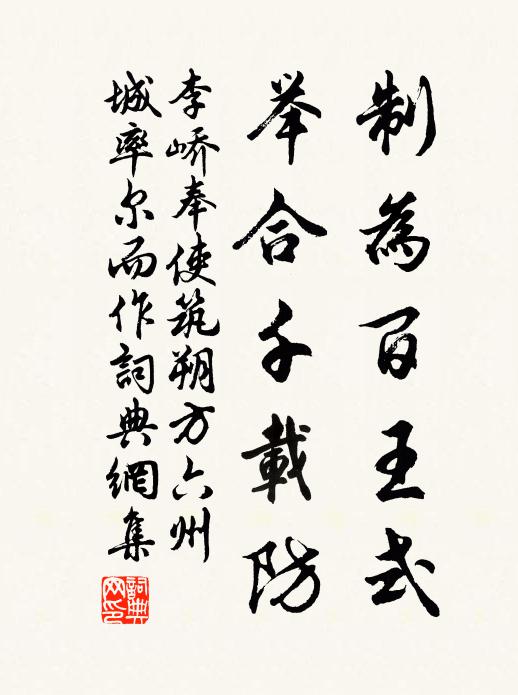 制為百王式
举合千載防
李峤奉使筑朔方六州
城率尔而作詞典網集
詞典網印